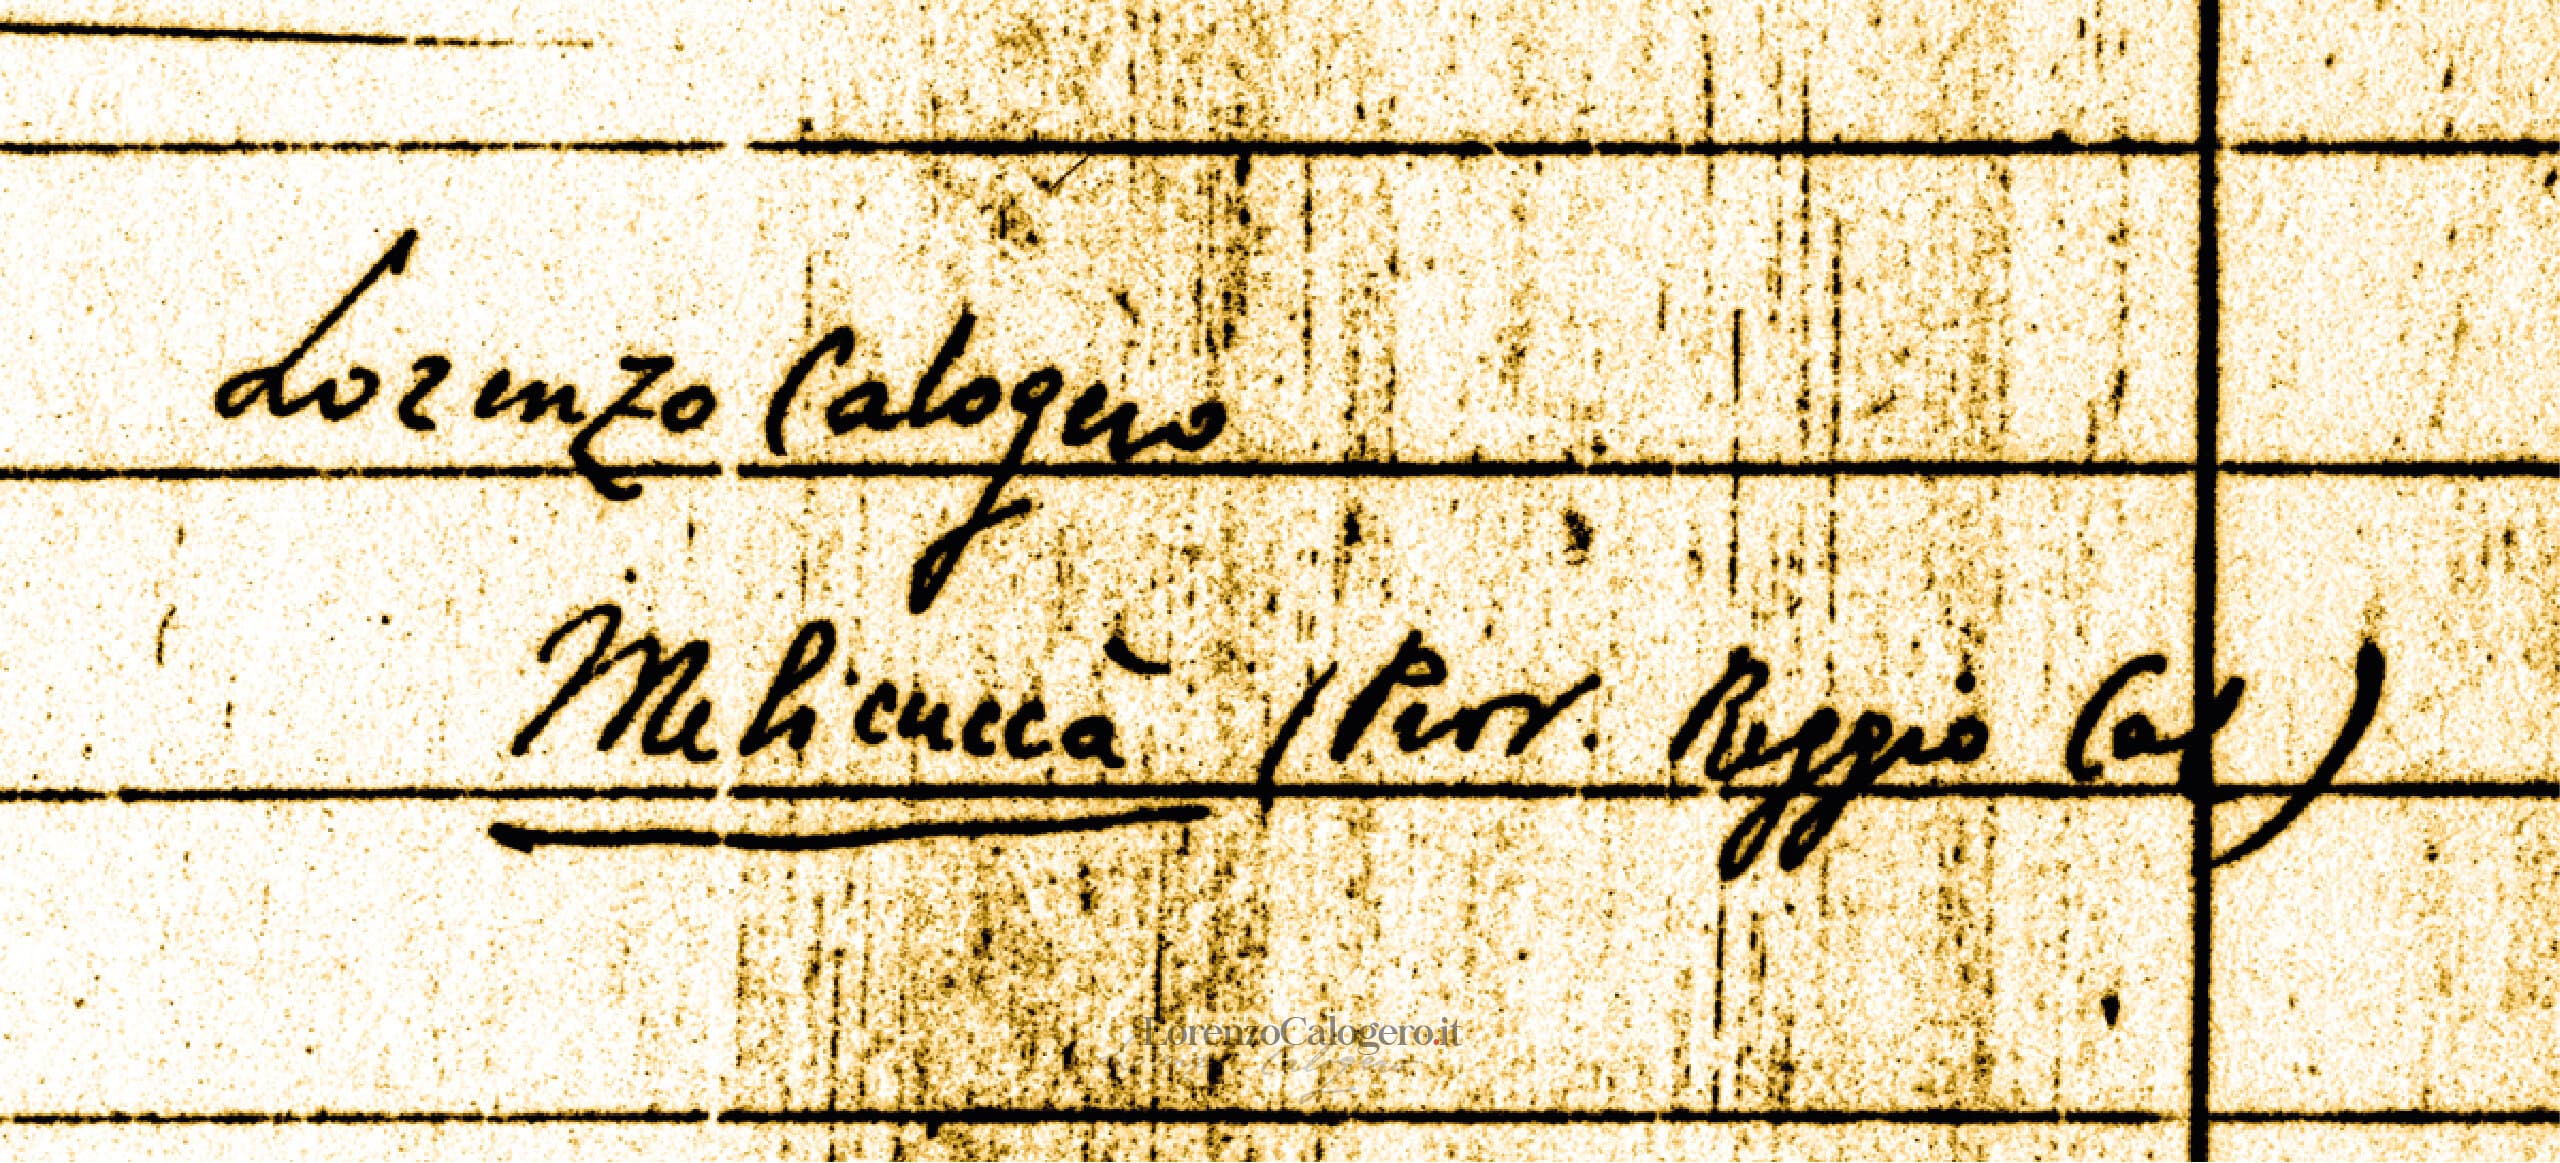 Lorenzo Calogero
Melicuccà (Prov. Reggio Cal)
LorenzoCalogero.it
Lorenzo Calogero